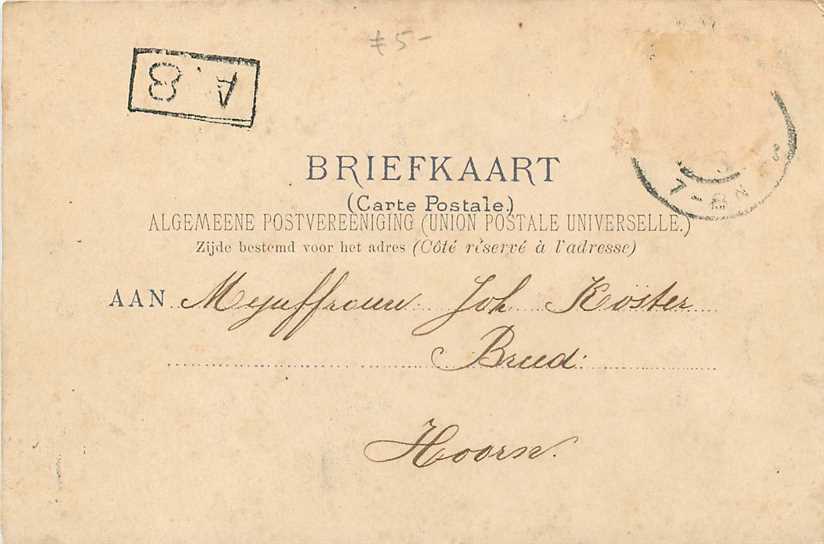 ƒ 5-
A. 8
BRIEFKAART
(Carte Postale.)
ALGEMEENE POSTVEREENIGING (UNION POSTALE UNIVERSELLE.)
Zijde bestemd voor het adres (Côté réservé à l'adresse)
7-8N
AAN Mejuffrouw Joh Köster
Breed
Hoorn.